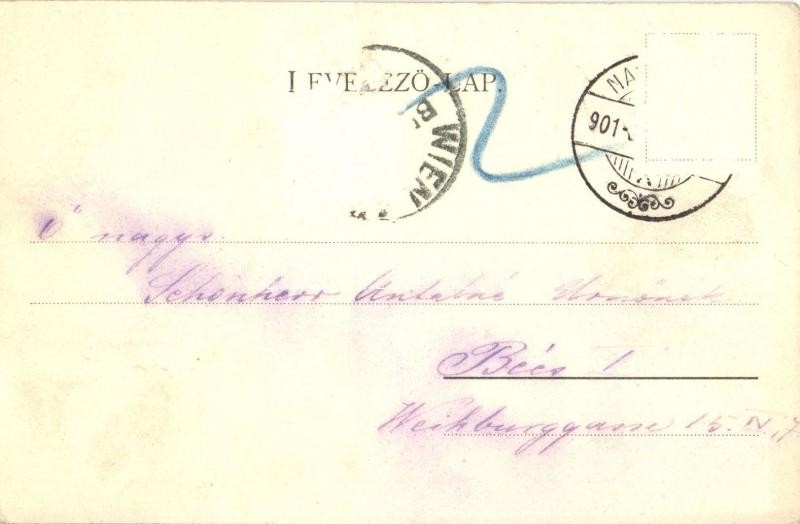 LEVELEZŐ-LAP.
WIEN
NA
901-
Ő nagys.
Schönherr Antalné Urnőnek
Bécs I
Weihburggasse 15. IV, 7